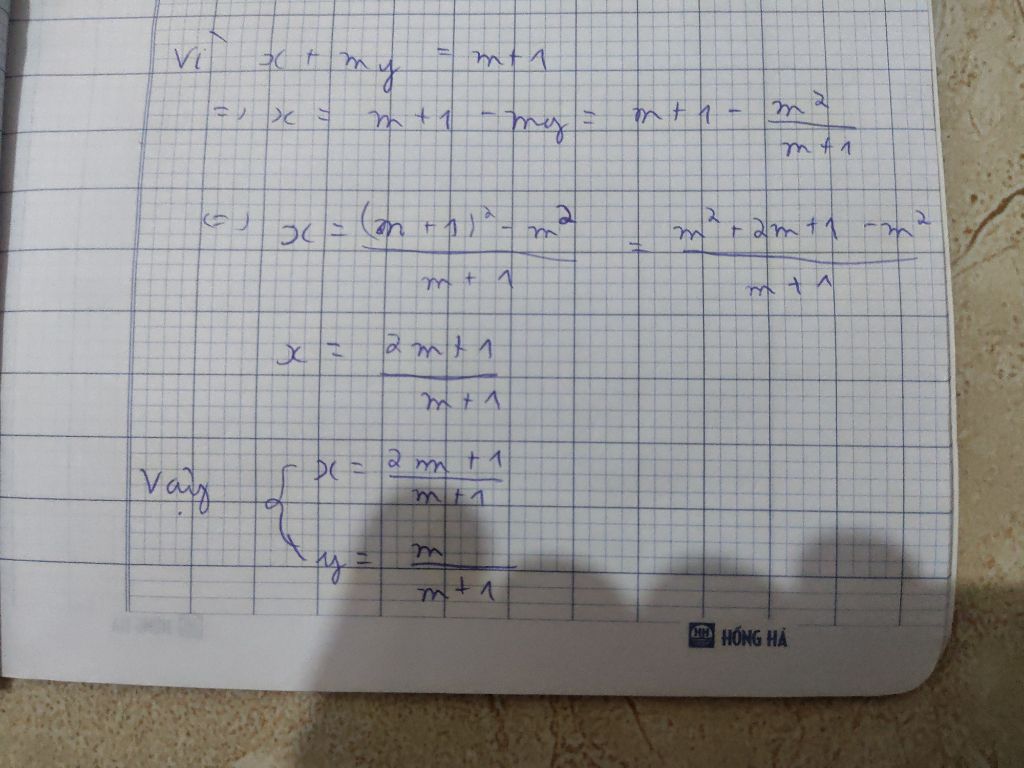 Vì x + my = m+1
=> x = m+1 - my = m+1 - m²/(m+1)
<=> x = ((m+1)² - m²)/(m+1) = (m² + 2m+1 - m²)/(m+1)
x = (2m+1)/(m+1)
Vậy { x = (2m+1)/(m+1)
y = m/(m+1)
HH HỒNG HÀ